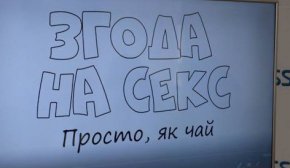 ЗГОДА
НА СЕКС
Просто, як чай